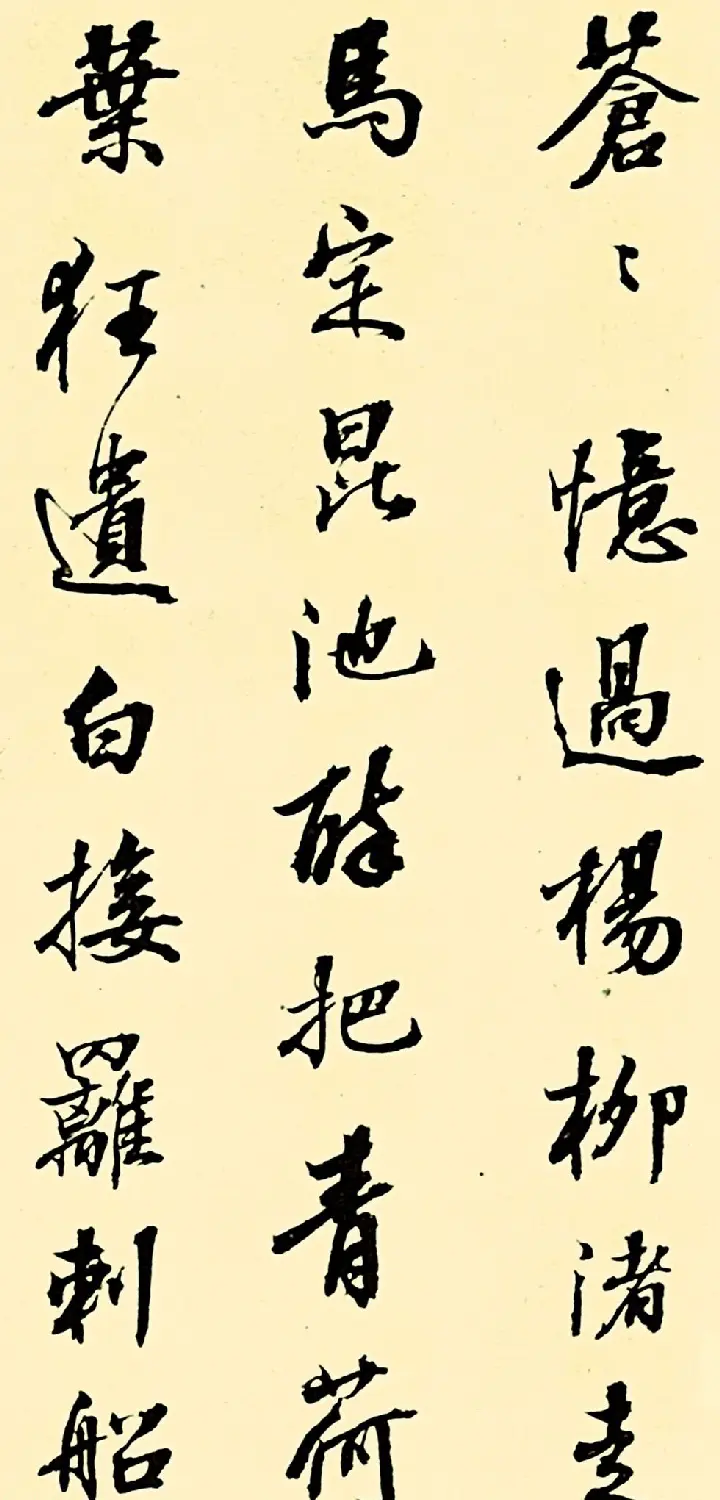 蒼〻憶過楊柳渚走
馬定昆池醉把青荷
葉狂遺白接䍦刺船